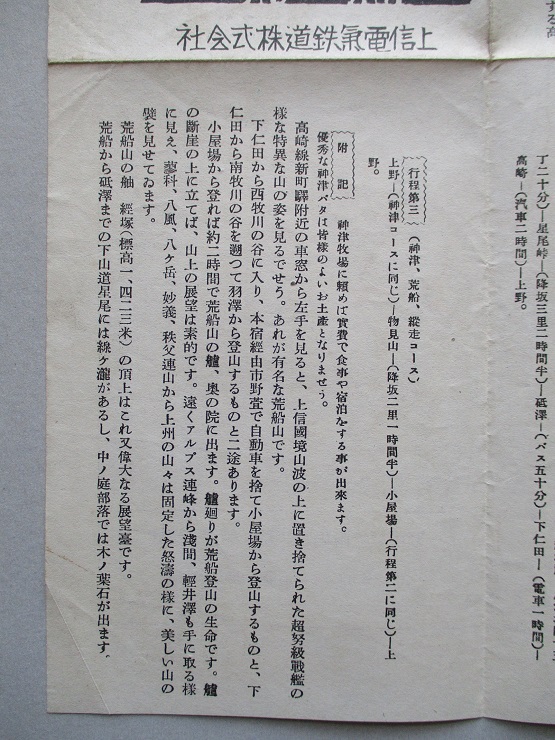 上信電氣鉄道株式会社
する高
丁二十分)―星尾峠―(降坂三里二時間半)―砥澤―(バス五十分)―下仁田―(電車一時間)―
高崎―(汽車二時間)―上野。
行程第三 (神津、荒船、縱走コース)
上野―(神津コースに同じ)―物見山―(降坂二里一時間半)―小屋場―(行程第二に同じ)―上
野。
附記 神津牧場に頼めば實費で食事や宿泊をする事が出來ます。
優秀な神津バタは皆様のよいお土産となりませう。
高崎線新町驛附近の車窓から左手を見ると、上信國境山波の上に置き捨てられた超弩級戰艦の
様な特異な山の姿を見るでせう。あれが有名な荒船山です。
下仁田から西牧川の谷に入り、本宿經由市野萱で自動車を捨て小屋場から登山するものと、下
仁田から南牧川の谷を遡つて羽澤から登山するものと二途あります。
小屋場から登れば約二時間で荒船山の艫、奥の院に出ます。艫廻りが荒船登山の生命です。艫
の斷崖の上に立てば、山上の展望は素的です。遠くアルプス連峰から淺間、輕井澤も手に取る様
に見え、蓼科、八風、八ヶ岳、妙義、秩父連山から上州の山々は固定した怒濤の様に、美しい山の
襞を見せてゐます。
荒船山の舳 經塚(標高一、四二三米)の頂上はこれ又偉大なる展望臺です。
荒船から砥澤までの下山道星尾には線ヶ瀧があるし、中ノ庭部落では木ノ葉石が出ます。